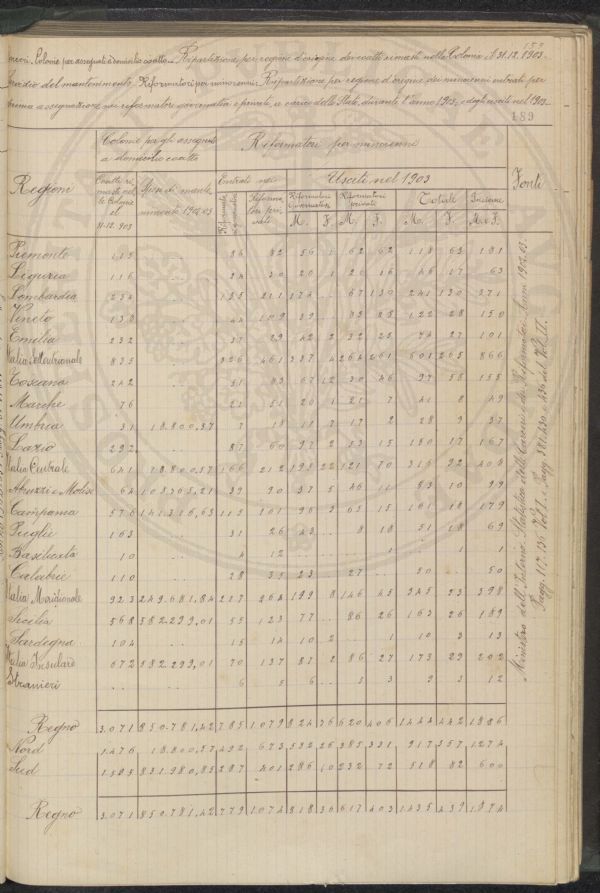 Colonie per assegnati a domicilio coatto. Ripartizione per regione d'origine dei coatti rimasti nelle Colonie il 31.12.1903.
del mantenimento. Riformatori per minorenni. Ripartizione per regione d'origine dei minorenni entrati per
prima assegnazione nei riformatori governativi e privati, a carico dello Stato, durante l'anno 1903, e degli usciti nel 1903.
189
Colonie per gli assegnati a domicilio coatto Riformatori per minorenni
Entrate nei Usciti nel 1903 Fonti
Regioni Coatti rimasti nelle Colonie al 31-12.903 Spese di mantenimento 1902.03 Riformatori governativi Riformatori privati Riformatori Governativi Riformatori privati Totale Insieme
M. F. M. F. M. F. M. e F.
Piemonte 56 1 62 62 118 63 181
Liguria 116 .. 24 30 20 1 26 16 46 17 63
Lombardia 234 .. 135 211 174 .. 67 130 241 130 371
Veneto 138 .. 44 109 39 .. 83 28 122 28 150
Emilia 232 .. 37 29 42 2 32 25 74 27 101
Italia Settentrionale 835 .. 326 461 337 4 264 261 601 265 866
Toscana 242 .. 51 83 67 12 30 46 97 58 155
Marche 76 .. 21 51 20 1 21 7 41 8 49
Umbria 31 18.800,57 7 18 11 7 17 2 28 9 37
Lazio 292 .. 87 60 97 2 53 15 150 17 167
Italia Centrale 641 18800,57 166 212 195 22 121 70 316 92 408
Abruzzi e Molise 64 108365,21 39 90 37 5 46 11 83 16 99
Campania 576 141316,63 115 101 96 3 65 15 161 18 179
Puglie 163 .. 31 26 43 .. 8 18 51 18 69
Basilicata 10 .. 4 12 .. .. .. 1 .. 1 1
Calabrie 110 .. 28 35 23 .. 27 .. 50 .. 50
Italia Meridionale 923 249.681,84 217 264 199 8 146 45 345 53 398
Sicilia 568 582.299,01 55 123 77 .. 86 26 163 26 189
Sardegna 104 .. 15 14 10 2 .. 1 10 3 13
Italia Insulare 672 582.299,01 70 137 87 2 86 27 173 29 202
Stranieri .. .. 6 5 6 .. 3 3 9 3 12
Regno 3.071 850.781,42 785 1079 824 36 620 406 1444 442 1886
Nord 1.476 18.800,57 492 673 532 26 385 331 917 357 1274
Sud 1.595 831.980,85 287 401 286 10 232 72 518 82 600
Regno 3.071 850.781,42 779 1074 818 36 617 403 1435 439 1874
Ministero dell'Interno. Statistica delle Carceri e dei Riformatori. Anno 1902.03.